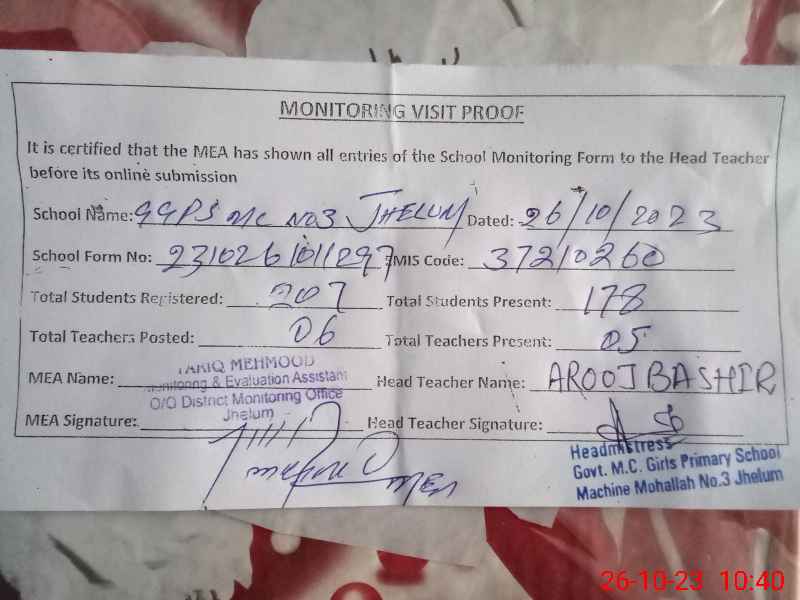 MONITORING VISIT PROOF
It is certified that the MEA has shown all entries of the School Monitoring Form to the Head Teacher
before its online submission
School Name: GGPS MC No3 JHELUM Dated: 26/10/2023
School Form No: 2310261011297 EMIS Code: 37210260
Total Students Registered: 207 Total Students Present: 178
Total Teachers Posted: 06 Total Teachers Present: 05
MEA Name: TARIQ MEHMOOD Head Teacher Name: AROOJ BASHIR
Monitoring & Evaluation Assistant
O/O District Monitoring Office
Jhelum
MEA Signature: Head Teacher Signature:
MEA
Headmistress
Govt. M.C. Girls Primary School
Machine Mohallah No.3 Jhelum
26-10-23 10:40